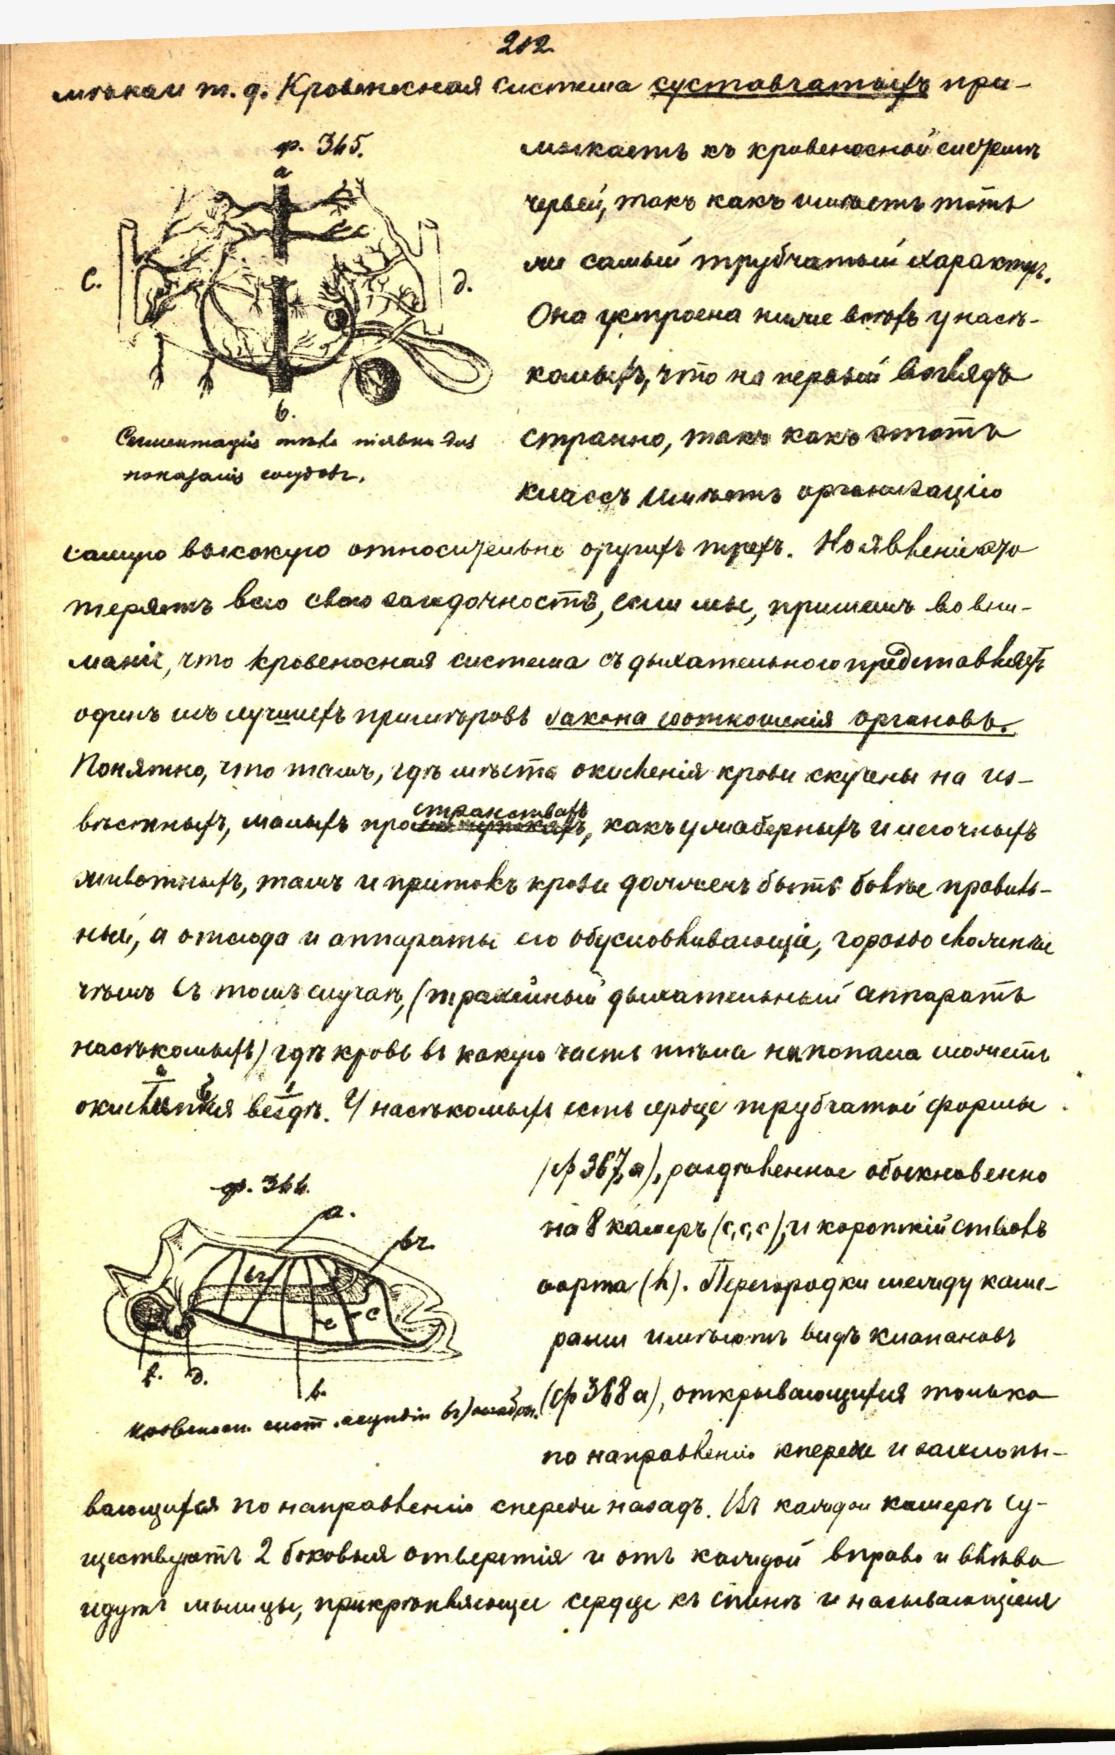 212
мѣнкаи т. д. Кровеносная система суставчатыхъ при-
ф. 365.
a
c.
д.
b.
Сегментація тѣла піявки для
показанія сосудовъ.
мыкаетъ къ кровеносной системѣ
червей, такъ какъ имѣетъ тотъ
же самый трубчатый характеръ.
Она устроена ниже всѣхъ у насѣ-
комыхъ, что на первый взглядъ
странно, такъ какъ этотъ
классъ имѣетъ организацію
самую высокую относительно другихъ трехъ. Но явленіе это
теряетъ всю свою загадочность, если мы, примемъ во вни-
маніе, что кровеносная система съ дыхательною представляетъ
одинъ изъ лучшихъ примѣровъ закона соотношенія органовъ.
Понятно, что тамъ, гдѣ мѣста окисленія крови скучены на из-
вѣстныхъ, малыхъ пространствахъ, какъ у жаберныхъ и легочныхъ
животныхъ, тамъ и притокъ крови долженъ быть болѣе правиль-
ный, а отсюда и аппараты его обусловливающіе, гораздо сложнѣе
чѣмъ въ томъ случаѣ, (трахейный дыхательный аппаратъ
насѣкомыхъ) гдѣ кровь въ какую часть тѣла ни попала можетъ
окисляться вездѣ. У насѣкомыхъ есть сердце трубчатой формы
ф. 366.
a.
br.
br
c
c
f.
д.
b.
Кровеносн. сист. асцидіи br) жабры.
(ф 367, а), раздѣленное обыкновенно
на 8 камеръ (c, c, c), и короткій стволъ
аорта (h). Перегородки между каме-
рами имѣютъ видъ клапановъ
(ф 368 а), открывающихся только
по направленію кпереди и захлопы-
вающихся по направленію спереди назадъ. Въ каждой камерѣ су-
ществуетъ 2 боковыя отверстія и отъ каждой вправо и влѣво
идутъ мышцы, прикрѣпляющіе сердце къ спинѣ и называющіеся